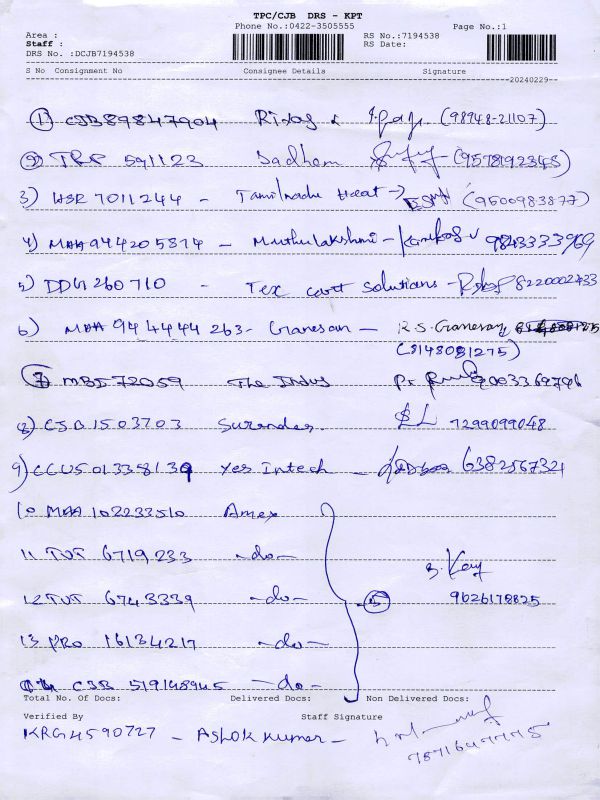 TPC/CJB DRS - KPT
Phone No.:0422-3505555 Page No.:1
Area : RS No.:7194538
Staff : RS Date:
DRS No. :DCJB7194538
S No Consignment No Consignee Details Signature
20240229
1) CJB89847904 (98948-21107)
2) TRP 591123 Sadham (9578192348)
3) HSR 7011244 - Tamilnadu Heat → (9500983877)
4) MAA944205814 - Muthulakshmi - 9843333969
5) DDG1260710 - Tex Solutions - 8220002433
6) MAA 944444263 - Ganesan - R.S. Ganesan
(8148081275)
7 MBI 72059 The Indus 9003369796
8) CJB1503703 Surender 7299099048
9) CCU501338139 Yes Intech - 6382567321
10 MAA 102233510 Amex
11 TUT 6719233 -do-
12 TUT 6743339 -do- 5 9626178825
13 PRO 16134217 -do-
14 CJB 519148945 -do-
Total No. Of Docs: Delivered Docs: Non Delivered Docs:
Verified By Staff Signature
KRG4590727 - Ashok Kumar -